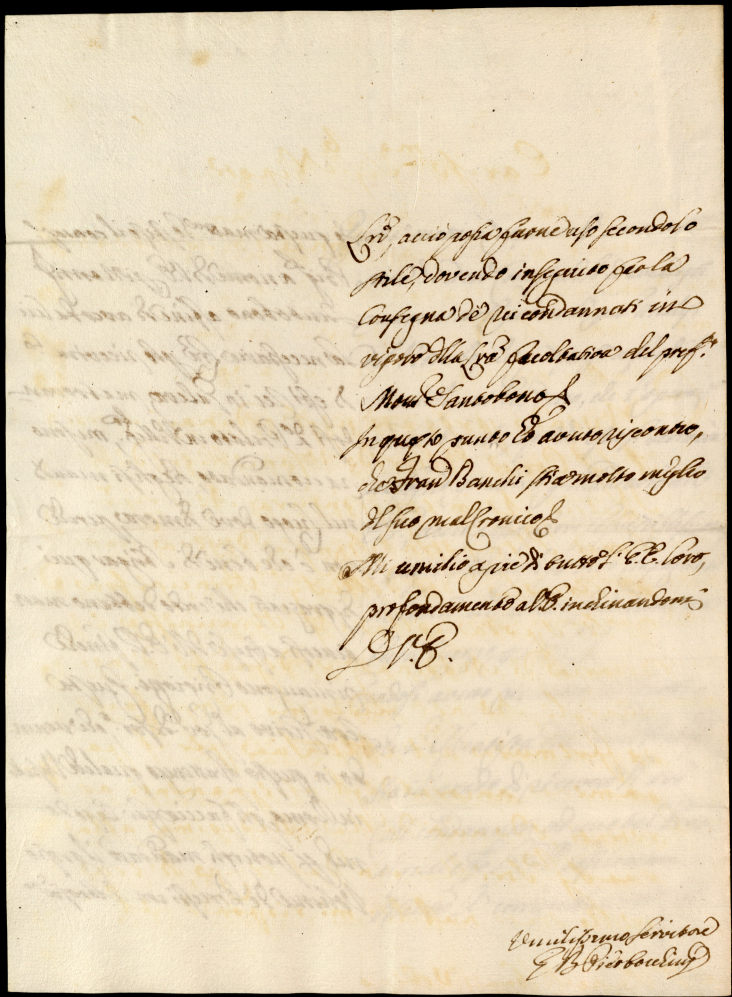 acciò possa farne uso secondo lo
stile, dovendo in seguito far la
Consegna de' ricondannati in
vigore della facoltativa del pref.to
In questo punto ho avuto riscontro,
che Fran. Banchi sta molto meglio
del suo mal Cronico
Mi umilio a piè di tutte l'E.E. loro,
profondamente all'E. inclinandomi
D. V. E.
Umilissimo Servitore